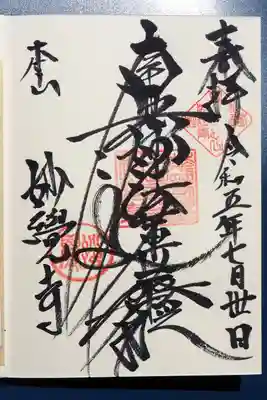 奉拝
令和五年七月廿日
南無妙法蓮華経
本山
妙覺寺